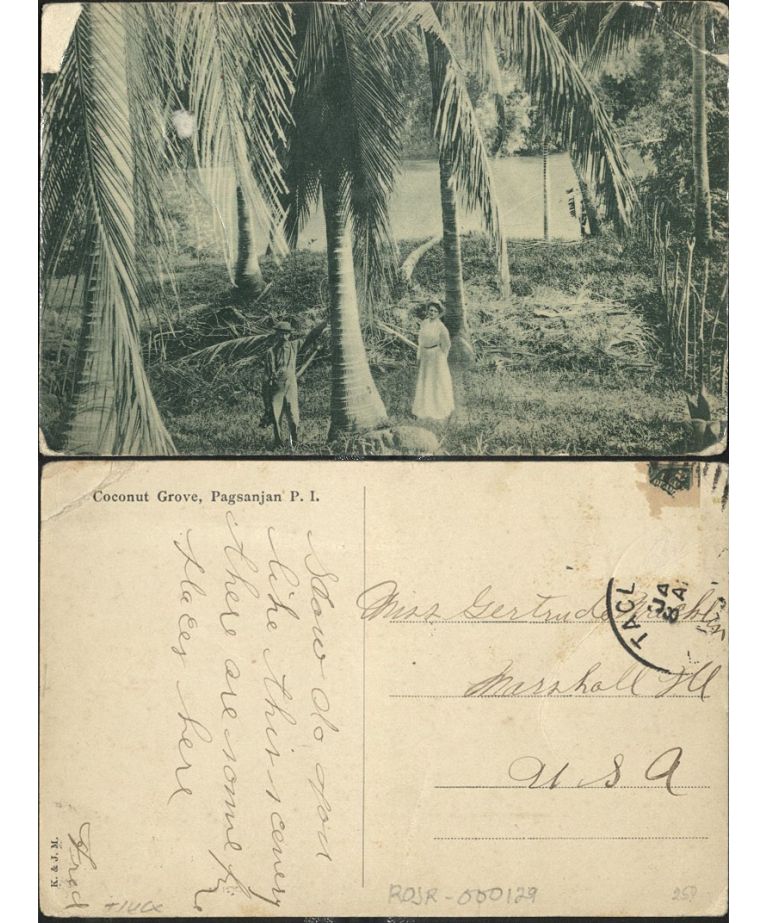 Coconut Grove, Pagsanjan P. I.
How do you
like this scenery
there are some fine
places here
Fred
K. & J. M.
Miss Gertrude
Marshall Ill
U S A
TACL
JA
8 A.
ROJR-000129